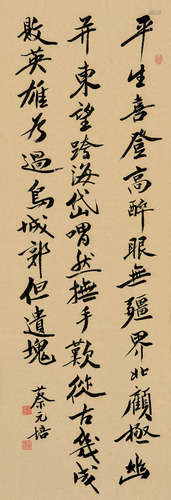 平生喜登高醉眼無疆界北顧極幽
并東望跨海岱喟然撫手歎從古幾成
敗英雄若過鳥城郭但遺塊
蔡元培